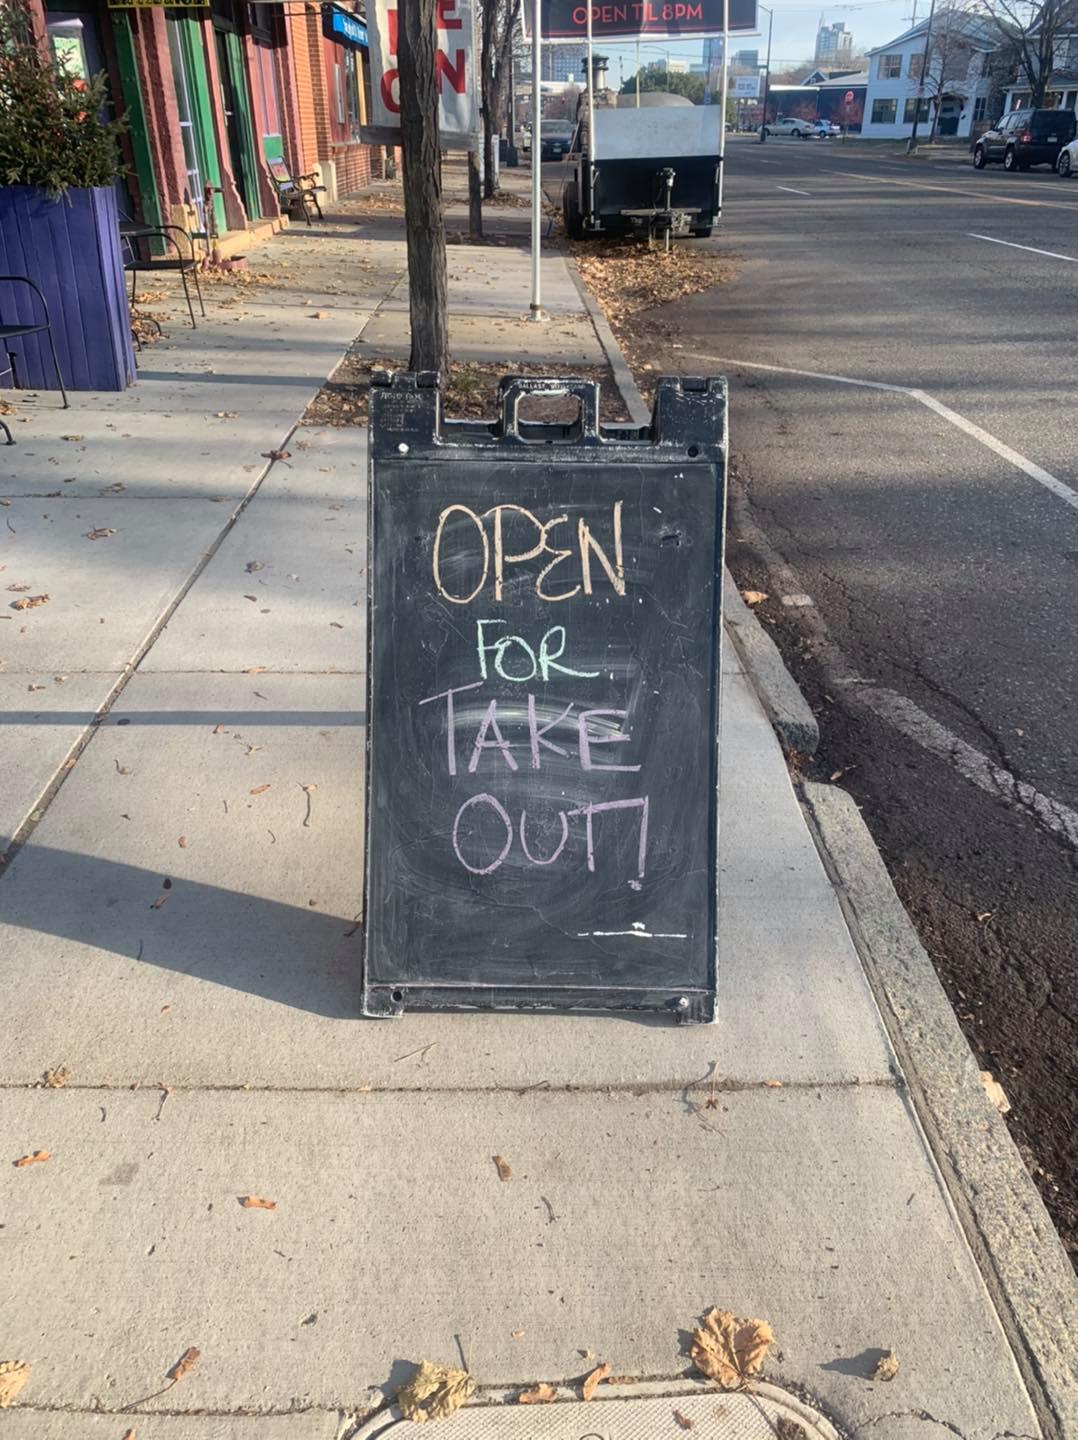 OPEN TIL 8PM
ON
OPEN
FOR
TAKE
OUT!